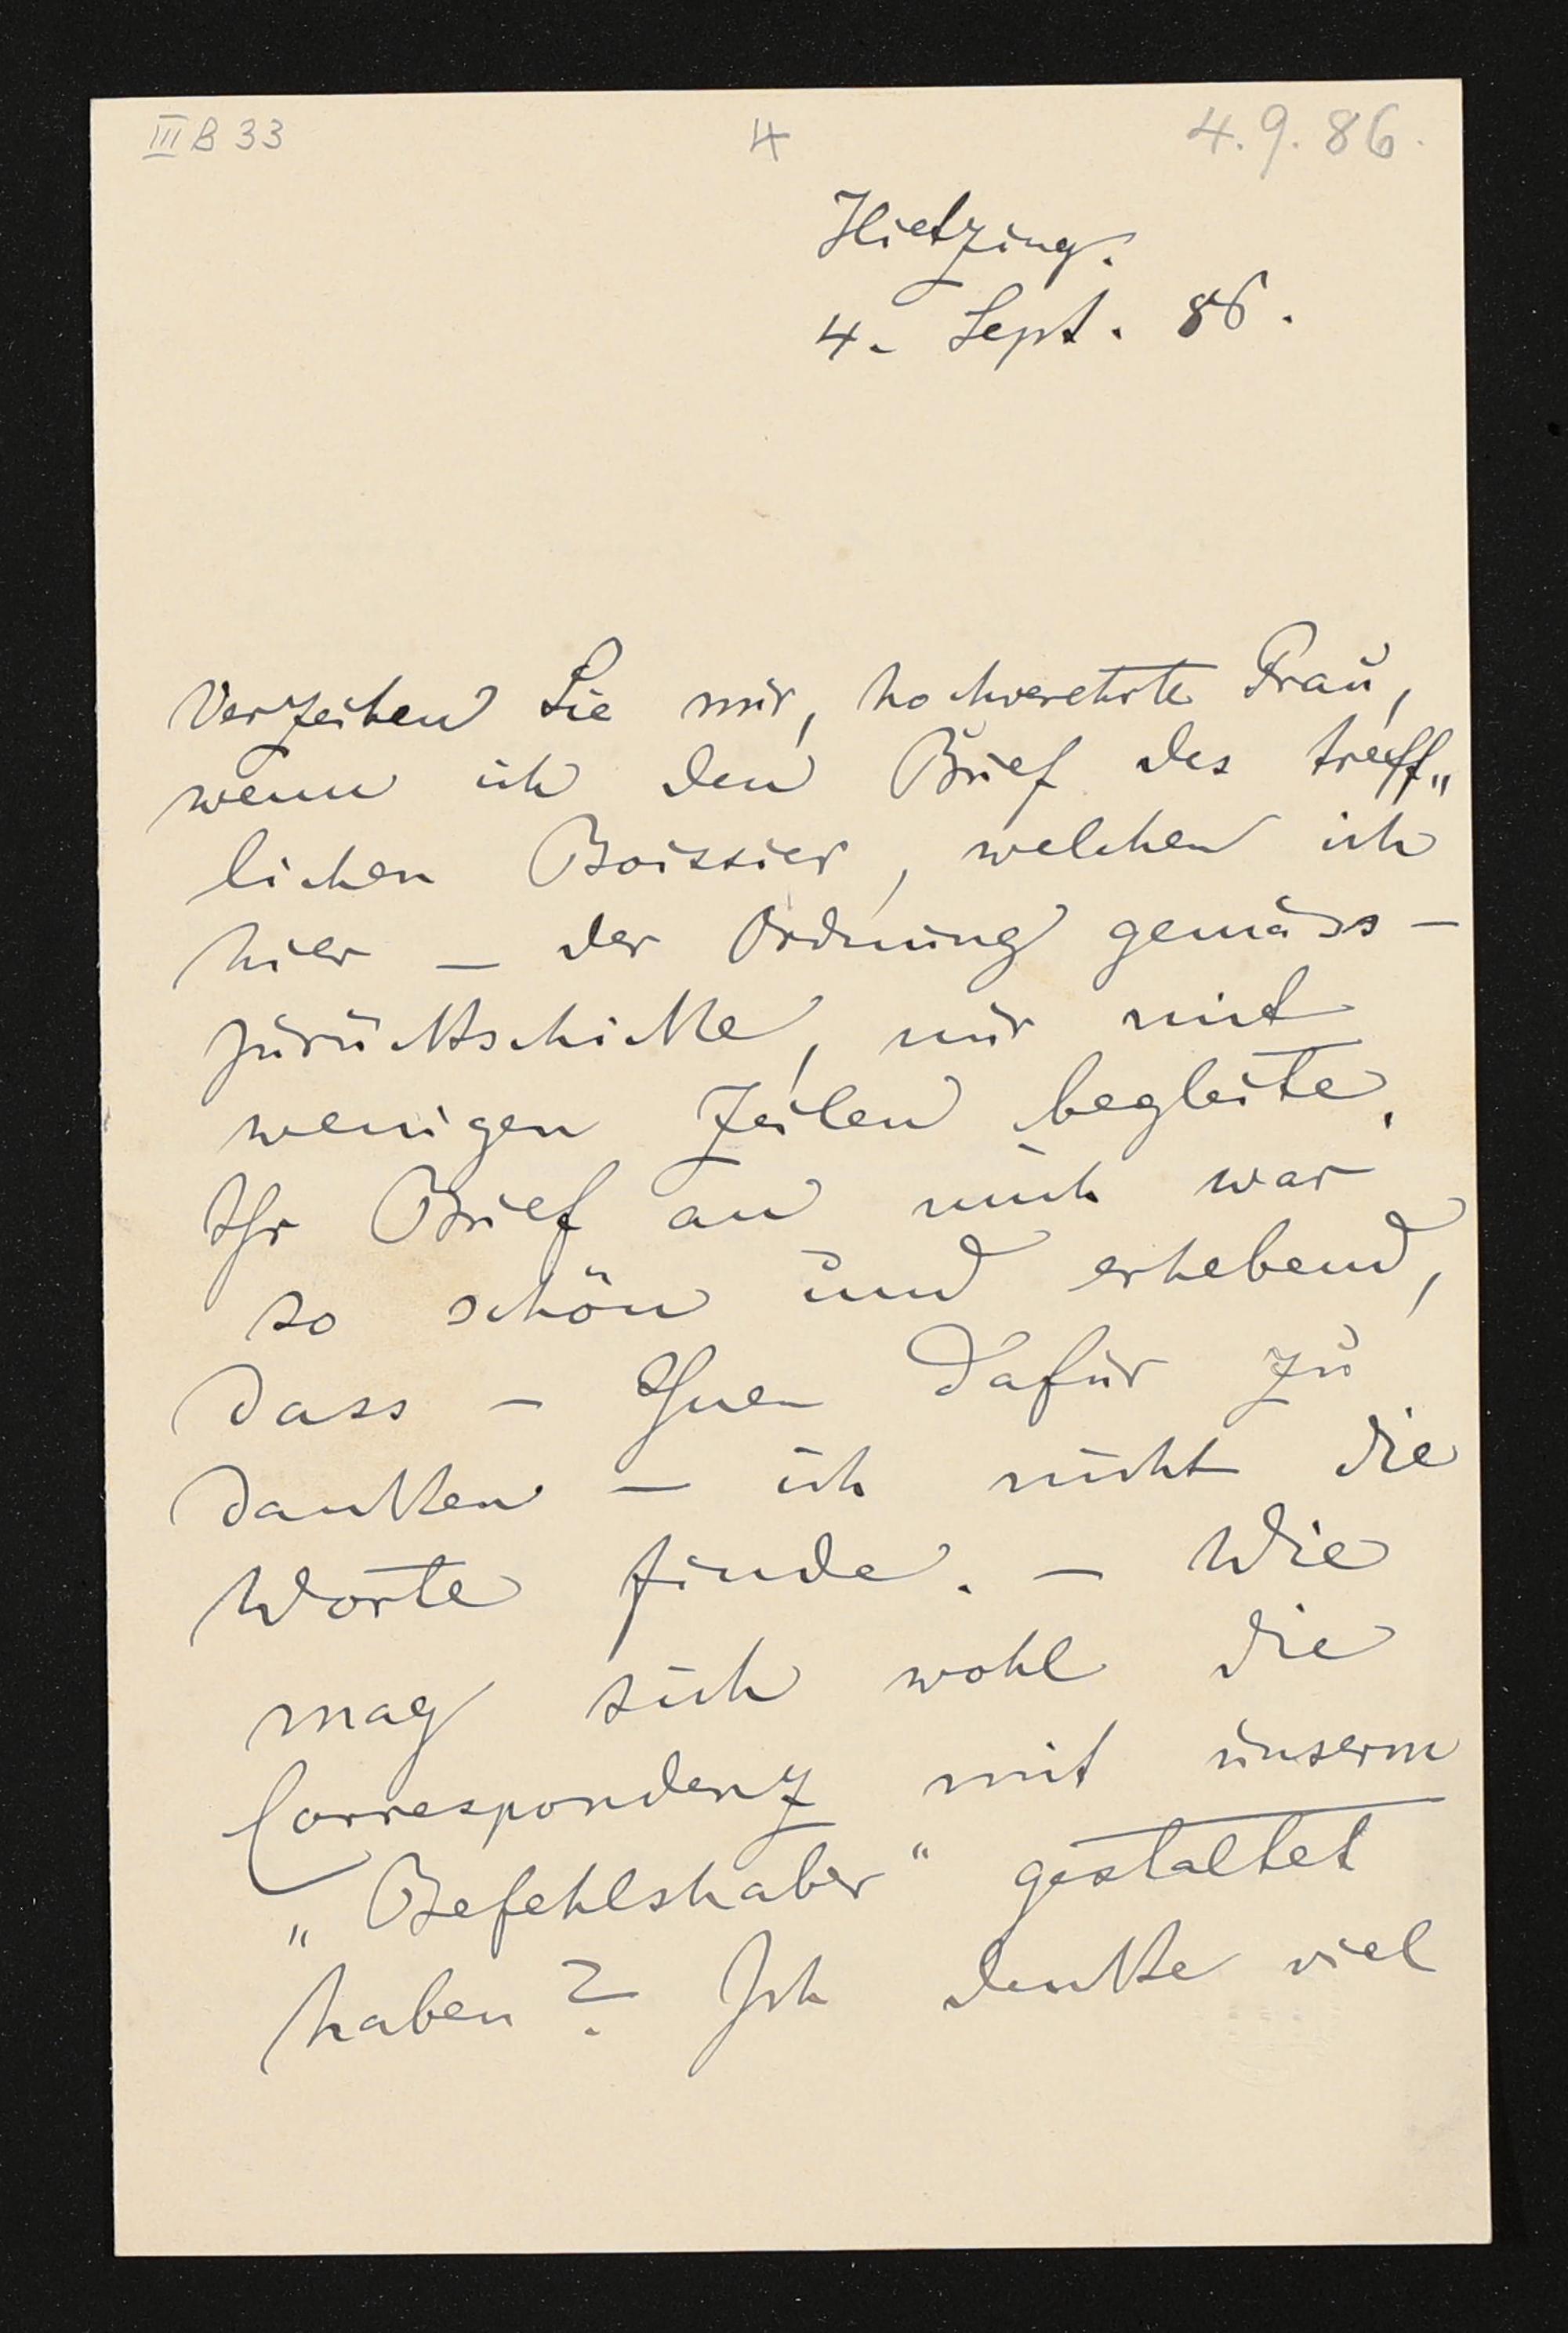 III B 33
4
4.9.86.
Hietzing.
4. Sept. 86.
Verzeihen Sie mir, hochverehrte Frau,
wenn ich den Brief des treff„
lichen Boissier, welchen ich
hier – der Ordnung gemäss –
zurükkschikke, nur mit
wenigen Zeilen begleite.
Ihr Brief an mich war
so schön und erhebend,
dass – Ihnen dafür zu
dankken – ich nicht die
Worte finde. – Wie
mag sich wohl die
Correspondenz mit unserm
„Befehlshaber“ gestaltet
haben? Ich denkke viel